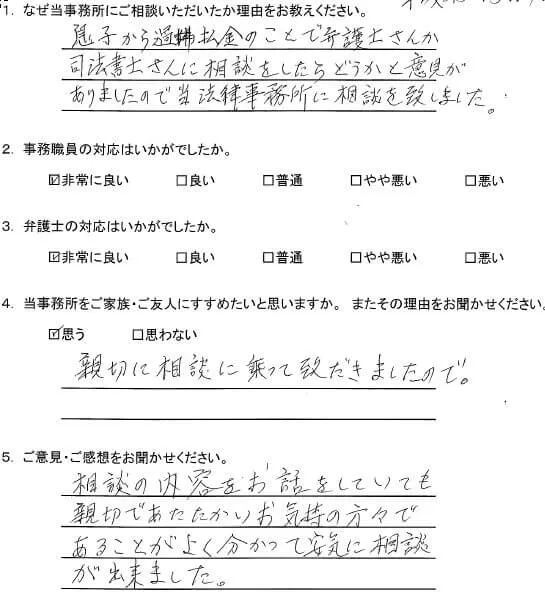 1. なぜ当事務所にご相談いただいたか理由をお教えください。
息子から過払金のことで弁護士さんか
司法書士さんに相談をしたらどうかと意見が
ありましたので当法律事務所に相談を致しました。
2. 事務職員の対応はいかがでしたか。
☑非常に良い □良い □普通 □やや悪い □悪い
3. 弁護士の対応はいかがでしたか。
☑非常に良い □良い □普通 □やや悪い □悪い
4. 当事務所をご家族・ご友人にすすめたいと思いますか。 またその理由をお聞かせください。
☑思う □思わない
親切に相談に乗って致だきましたので。
5. ご意見・ご感想をお聞かせください。
相談の内容をお話をしていても
親切であたたかいお気持の方々で
あることがよく分かって安気に相談
が出来ました。